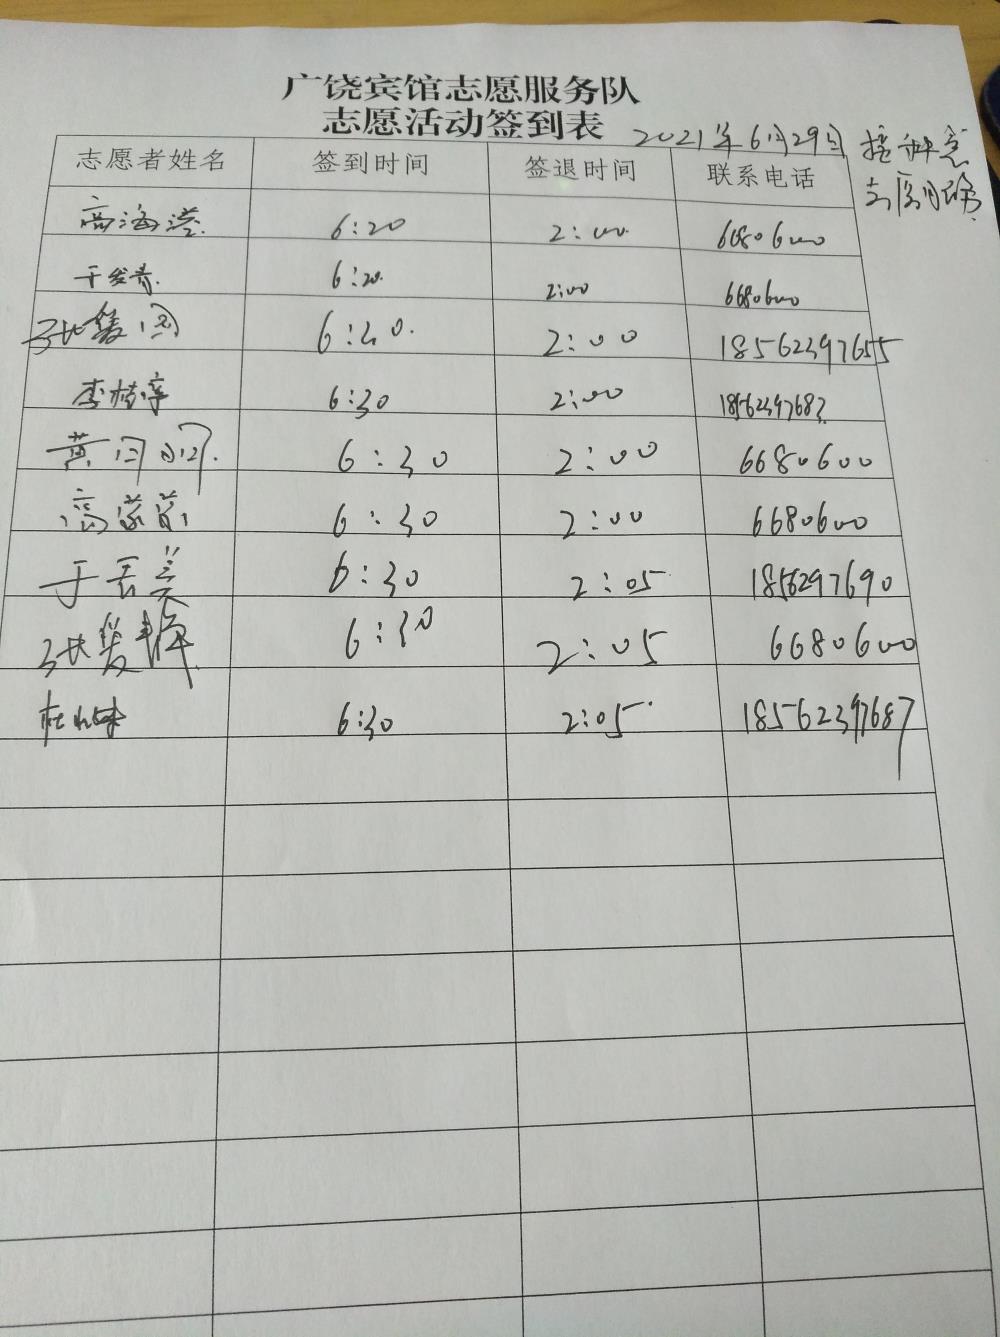 广饶宾馆志愿服务队
志愿活动签到表
2021年6月29日 接种意
志愿服务
志愿者姓名 签到时间 签退时间 联系电话
高海港 6:20 2:00 6680600
于发青 6:20 2:00 6680600
6:20 2:00 18562397655
李桂萍 6:30 2:00 18562397683
黄闪闪 6:30 2:00 6680600
高蒙蒙 6:30 2:00 6680600
于 美 6:30 2:05 1856297690
6:30 2:05 6680600
杜 6:30 2:05 18562397687